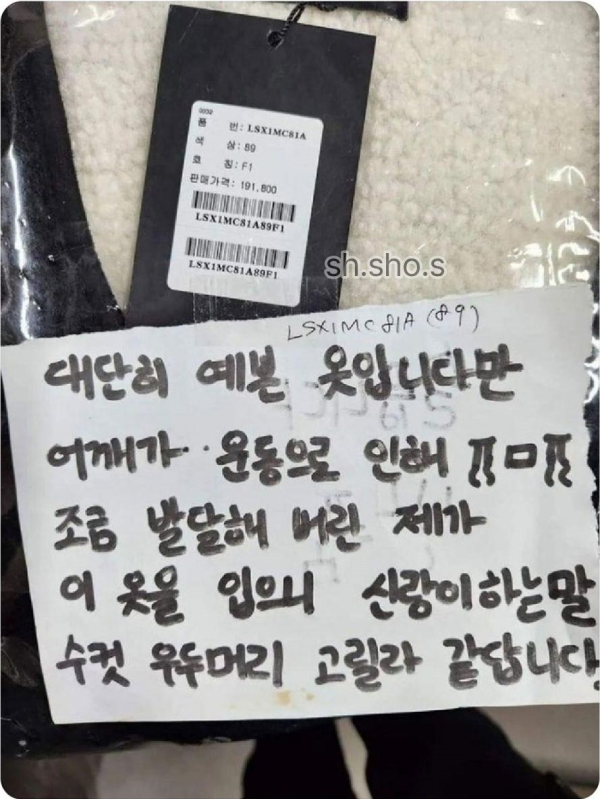 0032
품 번: LSX1MC81A
색 상: 89
호 칭: F1
판매가격: 191,800
LSX1MC81A89F1
LSX1MC81A89F1
sh.sho.s
LSX1MC81A (89)
대단히 예쁜 옷입니다만
어깨가.. 운동으로 인해 ㅠㅁㅠ
조금 발달해 버린 제가
이 옷을 입으니 신랑이하는말
수컷 우두머리 고릴라 같답니다.